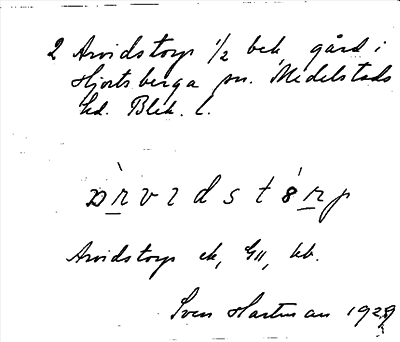 2 Arvidstorp 1/2 bek. gård i
Hjortsberga sn. Medelstads
hd. Blek. l.
Arvidstorp ek, GII, kb.
Sven Hartman 1929